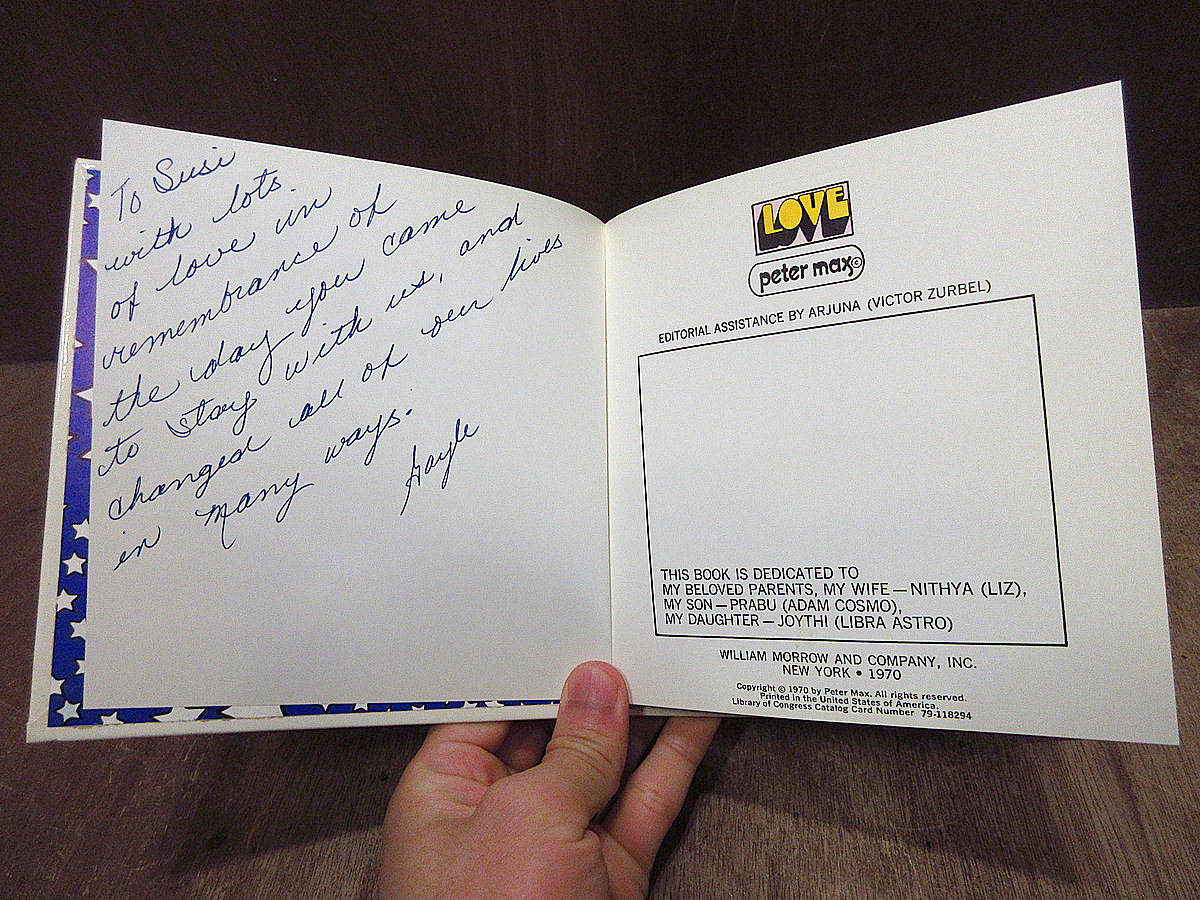 To Susi
with lots
of love in
remembrance of
the day you came
to stay with us, and
changed all of our lives
in many ways.
Gayle
LOVE
peter max©
EDITORIAL ASSISTANCE BY ARJUNA (VICTOR ZURBEL)
THIS BOOK IS DEDICATED TO
MY BELOVED PARENTS, MY WIFE—NITHYA (LIZ),
MY SON—PRABU (ADAM COSMO),
MY DAUGHTER—JOYTHI (LIBRA ASTRO)
WILLIAM MORROW AND COMPANY, INC.
NEW YORK • 1970
Copyright © 1970 by Peter Max. All rights reserved.
Printed in the United States of America.
Library of Congress Catalog Card Number 79-118294